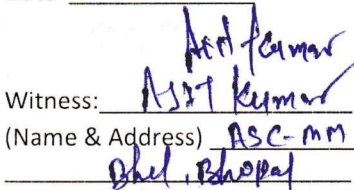 Ajit Kumar
Witness: AJIT Kumar
(Name & Address) ASC-MM
Bhel, Bhopal